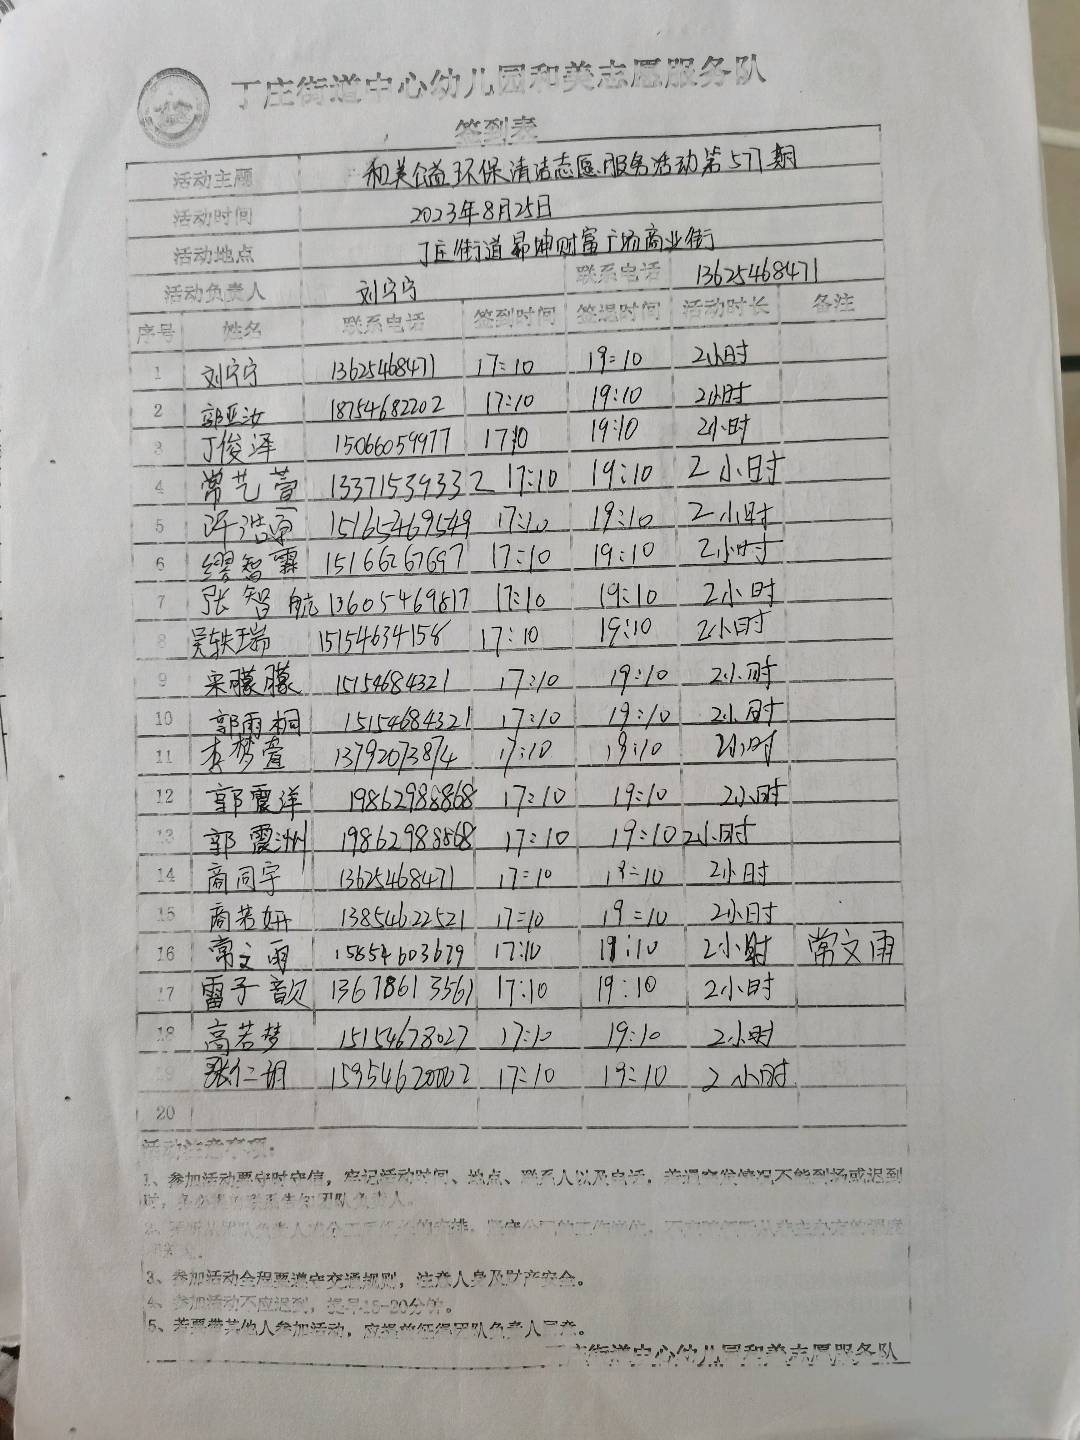 丁庄街道中心幼儿园和美志愿服务队
签到表
活动主题 和美公益环保清洁志愿服务活动第577期
活动时间 2023年8月25日
活动地点 丁庄街道昴坤财富广场商业街
活动负责人 刘宁宁 联系电话 13625468471
序号 姓名 联系电话 签到时间 签退时间 活动时长 备注
1 刘宁宁 13625468471 17:10 19:10 2小时
2 郭亚汝 18754682202 17:10 19:10 2小时
3 丁俊泽 15066059977 17:10 19:10 2小时
4 常艺萱 13371539332 17:10 19:10 2小时
5 许浩原 151653469549 17:10 19:10 2小时
6 缪智霖 15166267697 17:10 19:10 2小时
7 张智航 13605469817 17:10 19:10 2小时
8 吴轶瑞 15154634158 17:10 19:10 2小时
9 宋朦朦 15154684321 17:10 19:10 2小时
10 郭雨桐 15154684321 17:10 19:10 2小时
11 李梦萱 13792073874 17:10 19:10 2小时
12 郭震洋 19862988868 17:10 19:10 2小时
13 郭震洲 19862988868 17:10 19:10 2小时
14 商同宇 13625468471 17:10 19:10 2小时
15 商若妍 13854622521 17:10 19:10 2小时
16 常文雨 15854603679 17:10 19:10 2小时 常文雨
17 雷子歆 13678613561 17:10 19:10 2小时
18 高若梦 15154678027 17:10 19:10 2小时
19 张仁玥 15954620002 17:10 19:10 2小时
20
活动注意事项：
1、参加活动要守时守信，牢记活动时间、地点、联系人以及电话，若遇突发情况不能到场或迟到
时，务必提前联系告知团队负责人。
3、参加活动全程要遵守交通规则，注意人身及财产安全。
4、参加活动不应迟到，提早15-20分钟。
5、若要带其他人参加活动，应提前征得团队负责人同意。
丁庄街道中心幼儿园和美志愿服务队